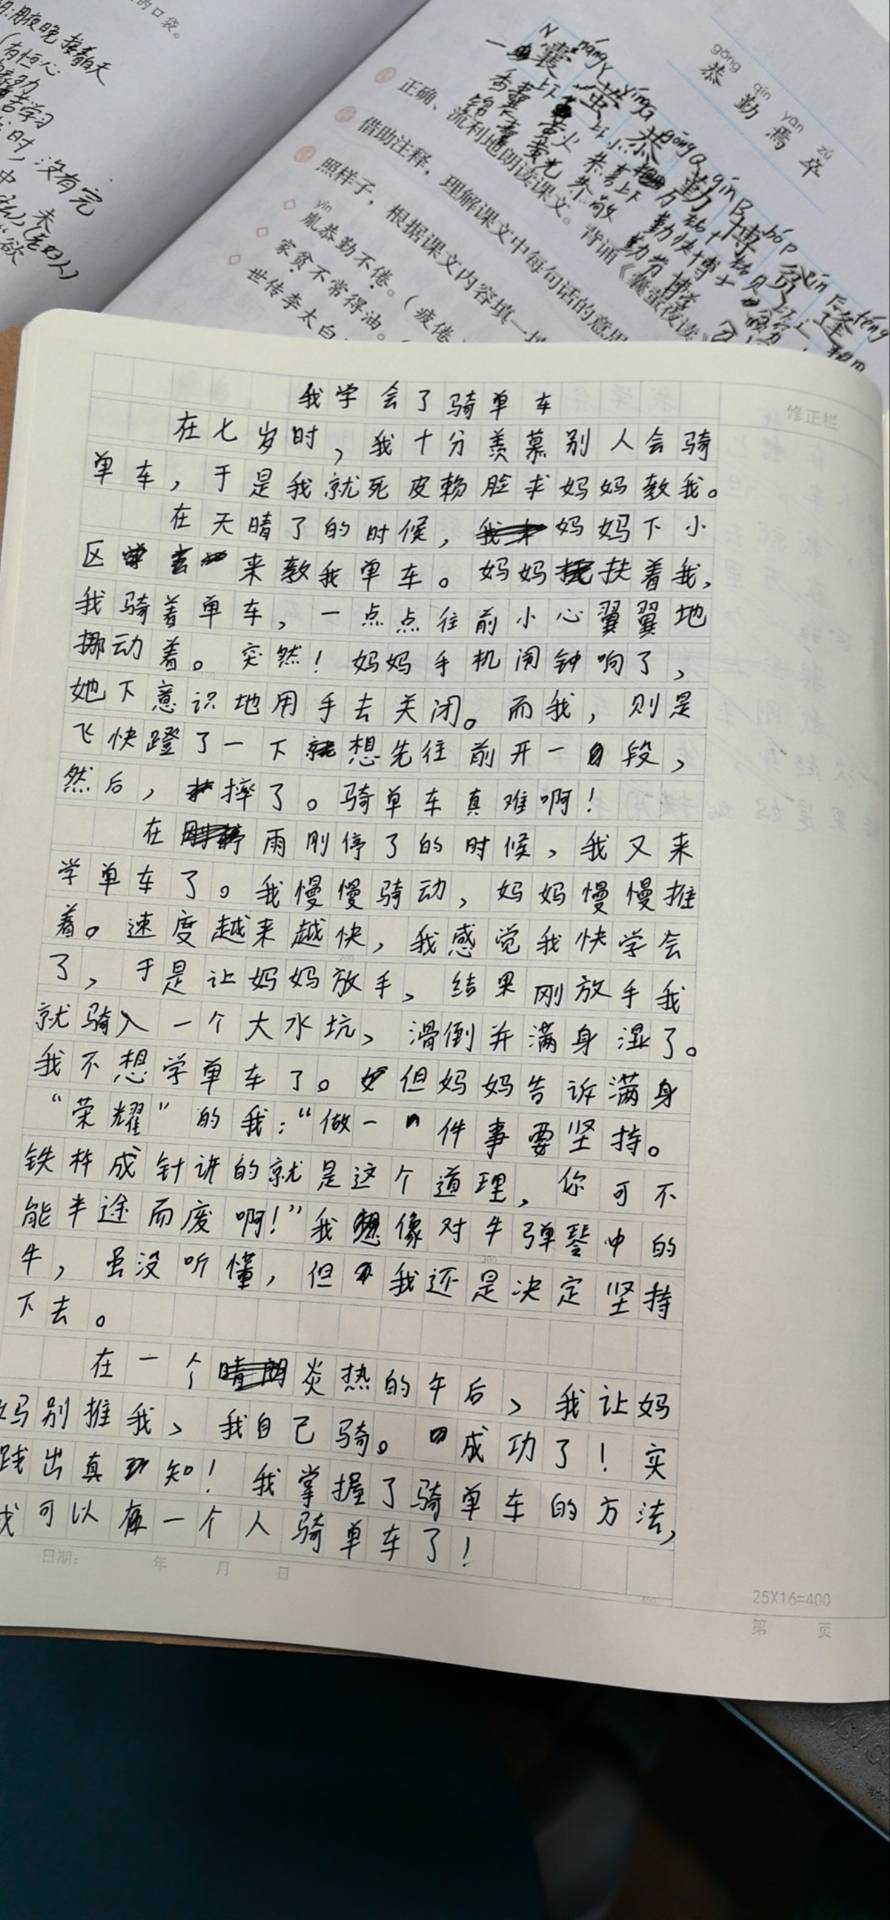 的口袋。
恭勤焉卒
gōng qín yān zú
正确、流利地朗读课文。背诵《囊萤夜读》
借助注释，理解课文中每句话的意思
照样子，根据课文内容填一填
yín
胤恭勤不倦。（疲倦
家贫不常得油。
世传李太白
修正栏
我学会了骑单车
在七岁时，我十分羡慕别人会骑
单车，于是我就死皮赖脸求妈妈教我。
在天晴了的时候，妈妈下小
区来教我单车。妈妈扶着我，
我骑着单车，一点点往前小心翼翼地
挪动着。突然！妈妈手机闹钟响了，
她下意识地用手去关闭。而我，则是
飞快蹬了一下想先往前开一段，
然后，摔了。骑单车真难啊！
在雨刚停了的时候，我又来
学单车了。我慢慢骑动，妈妈慢慢推
着。速度越来越快，我感觉我快学会
了，于是让妈妈放手，结果刚放手我
就骑入一个大水坑，滑倒并满身湿了。
我不想学单车了。但妈妈告诉满身
“荣耀”的我：“做一件事要坚持。
铁杵成针讲的就是这个道理，你可不
能半途而废啊！”我想像对牛弹琴中的
牛，虽没听懂，但我还是决定坚持
下去。
在一个炎热的午后，我让妈
妈别推我，我自己骑。成功了！实
践出真知！我掌握了骑单车的方法，
我可以一个人骑单车了！
日期： 年 月 日
25X16=400
第 页